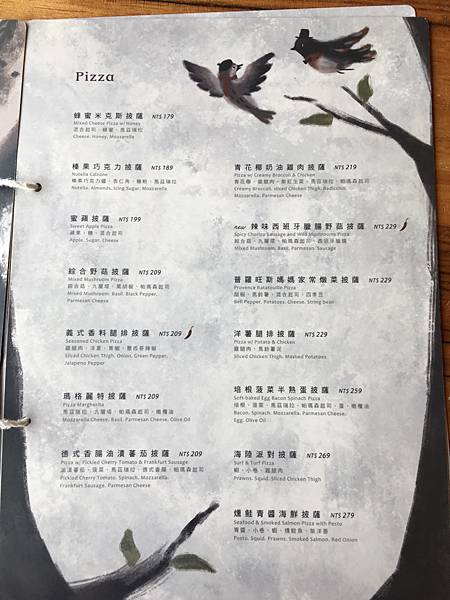 Pizza
蜂蜜米克斯披薩 NT$ 179
Mixed Cheese Pizza w/ Honey
混合起司、蜂蜜、馬茲瑞拉
Cheese, Honey, Mozzarella
榛果巧克力披薩 NT$ 189
Nutella Calzone
榛果巧克力醬、杏仁角、糖粉、馬茲瑞拉
Nutella, Almonds, Icing Sugar, Mozzarella
蜜蘋披薩 NT$ 199
Sweet Apple Pizza
蘋果、糖、混合起司
Apple, Sugar, Cheese
綜合野菇披薩 NT$ 209
Mixed Mushroom Pizza
綜合菇、九層塔、黑胡椒、帕瑪森起司
Mixed Mushroom, Basil, Black Pepper,
Parmesan Cheese
義式香料腿排披薩 NT$ 209
Seasoned Chicken Pizza
雞腿肉、洋蔥、青椒、墨西哥辣椒
Sliced Chicken Thigh, Onion, Green Pepper,
Jalapeno Pepper
瑪格麗特披薩 NT$ 209
Pizza Margherita
馬茲瑞拉、九層塔、帕瑪森起司、橄欖油
Mozzarella Cheese, Basil, Parmesan Cheese, Olive Oil
德式香腸油漬蕃茄披薩 NT$ 209
Pizza w/ Pickled Cherry Tomato & Frankfurt Sausage
油漬蕃茄、菠菜、馬茲瑞拉、德式香腸、帕瑪森起司
Pickled Cherry Tomato, Spinach, Mozzarella,
Frankfurt Sausage, Parmesan Cheese
青花椰奶油雞肉披薩 NT$ 219
Pizza w/ Creamy Broccoli & Chicken
Creamy Broccoli, Sliced Chicken Thigh, Radicchio,
Mozzarella, Parmesan Cheese
new 辣味西班牙臘腸野菇披薩 NT$ 229
Spicy Chorizo Sausage and Wild Mushrooms Pizza
綜合菇、九層塔、帕瑪森起司、西班牙臘腸
Mixed Mushroom, Basil, Parmesan, Sausage
普羅旺斯媽媽家常燉菜披薩 NT$ 229
Provence Ratatouille Pizza
甜椒、馬鈴薯、混合起司、四季豆
Bell Pepper, Potatoes, Cheese, String bean
洋薯腿排披薩 NT$ 229
Pizza w/ Potato & Chicken
雞腿肉、馬鈴薯泥
Sliced Chicken Thigh, Mashed Potatoes
培根菠菜半熟蛋披薩 NT$ 259
Soft-baked Egg Bacon Spinach Pizza
培根、菠菜、馬茲瑞拉、帕瑪森起司、蛋、橄欖油
Bacon, Spinach, Mozzarella, Parmesan Cheese,
Egg, Olive Oil
海陸派對披薩 NT$ 269
Surf & Turf Pizza
蝦、小卷、雞腿肉
Prawns, Squid, Sliced Chicken Thigh
燻鮭青醬海鮮披薩 NT$ 279
Seafood & Smoked Salmon Pizza with Pesto
青醬、小卷、蝦、燻鮭魚、紫洋蔥
Pesto, Squid, Prawns, Smoked Salmon, Red Onion